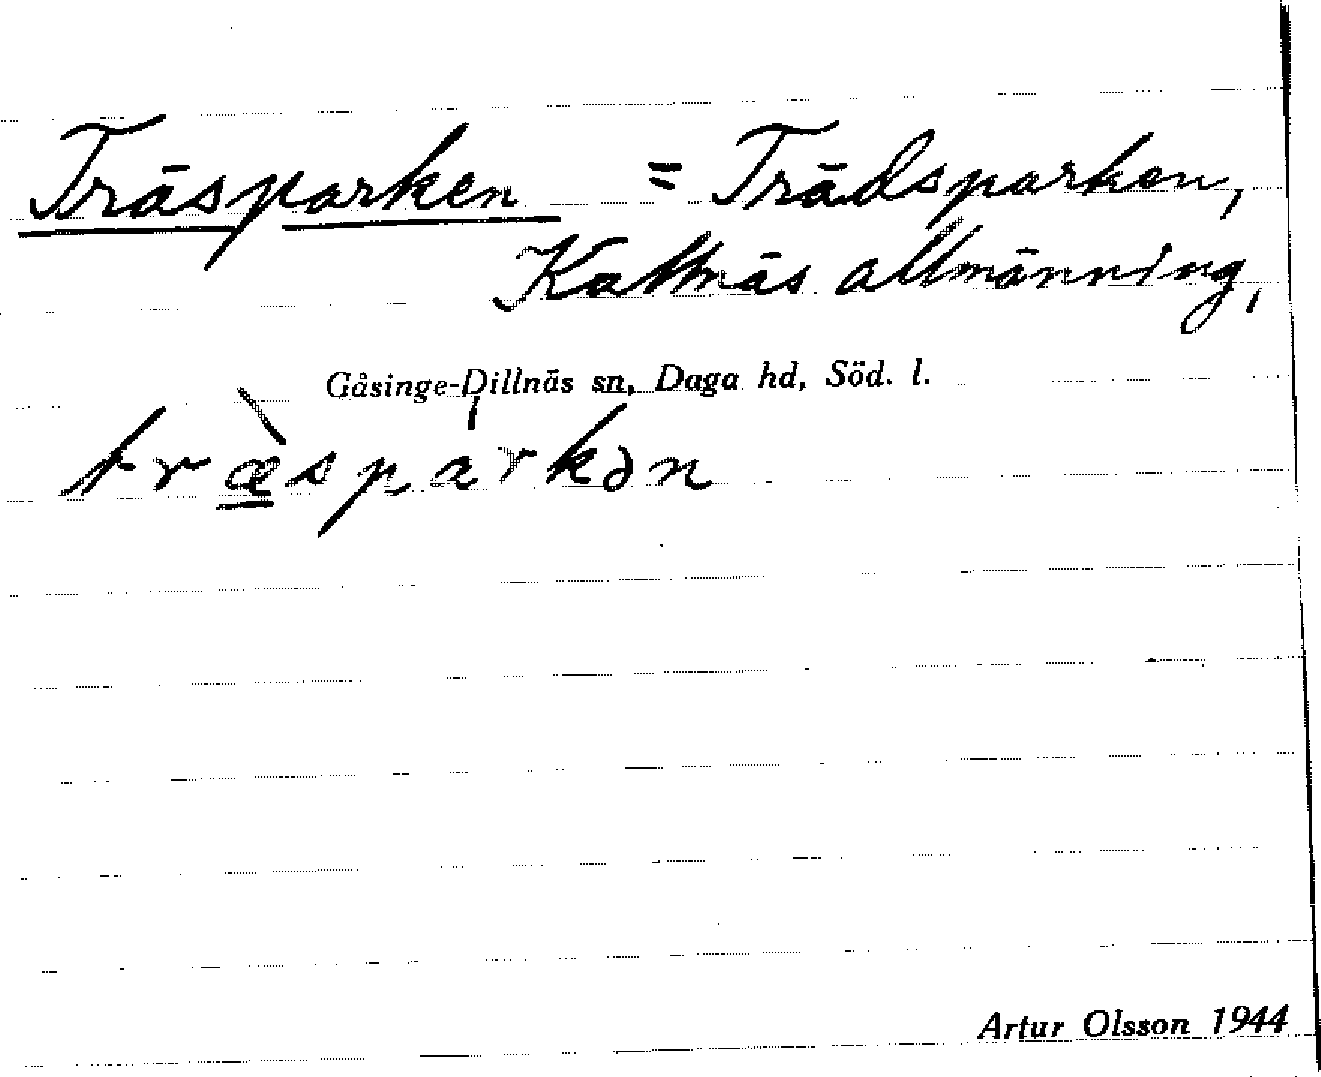 Träsparken = Trädsparken,
Kattnäs allmänning,
Gåsinge-Dillnäs sn, Daga hd, Söd. l.
træ̀spárkən
Artur Olsson 1944